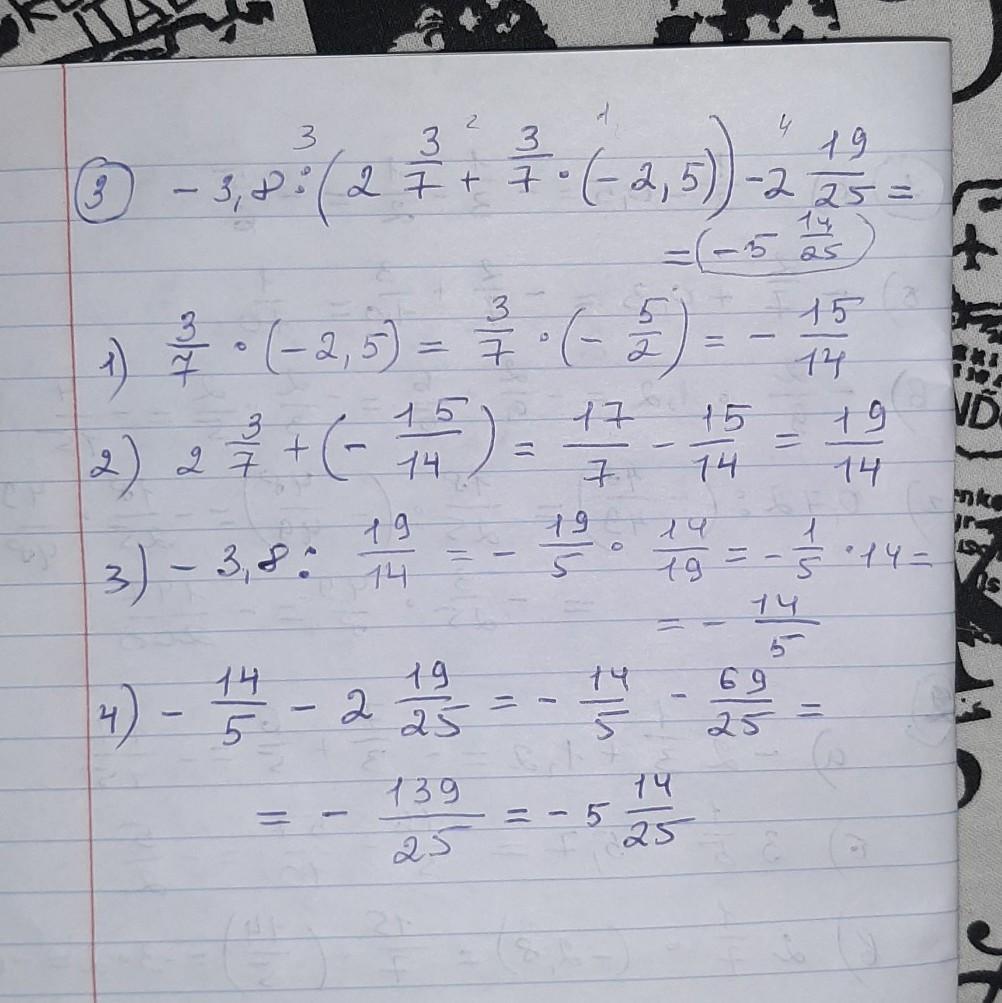 3) -3,8 : (2 3/7 + 3/7 · (-2,5)) - 2 19/25 =
= (-5 14/25)
1) 3/7 · (-2,5) = 3/7 · (- 5/2) = - 15/14
2) 2 3/7 + (- 15/14) = 17/7 - 15/14 = 19/14
3) -3,8 : 19/14 = - 19/5 · 14/19 = - 1/5 · 14 =
= - 14/5
4) - 14/5 - 2 19/25 = - 14/5 - 69/25 =
= - 139/25 = -5 14/25